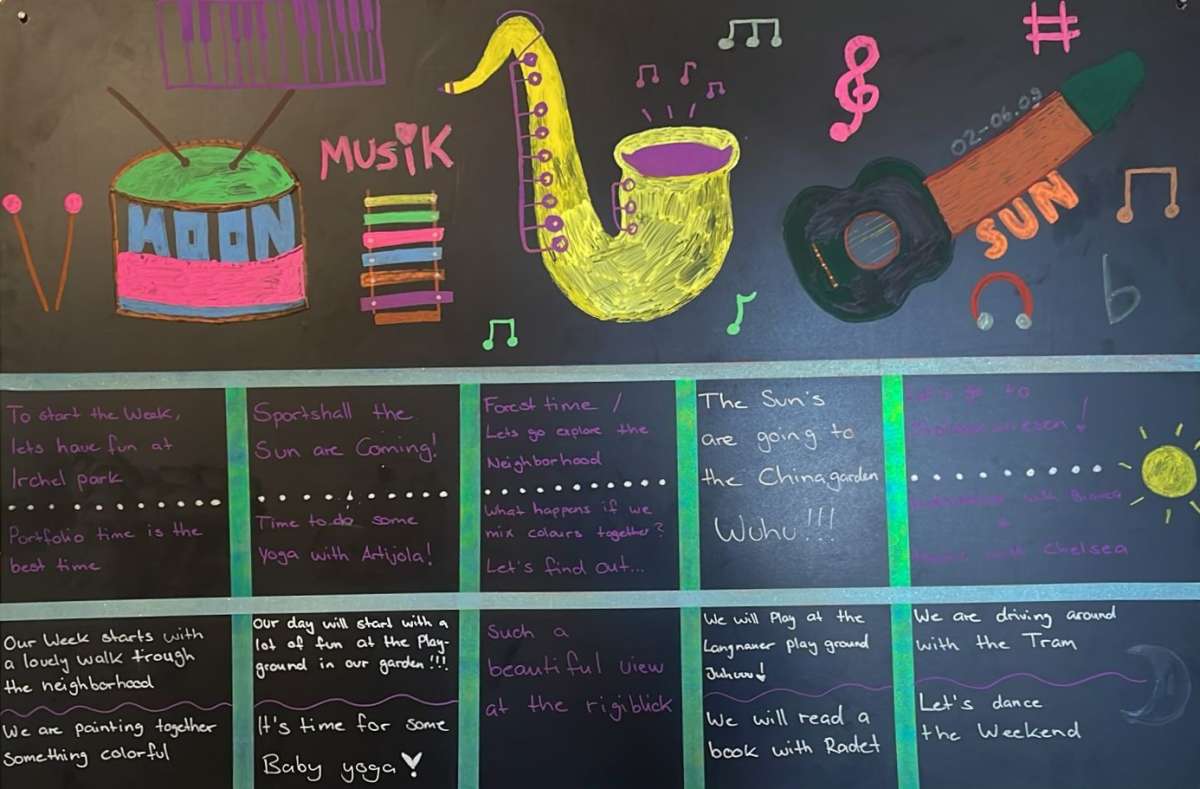 MUSiK
MOON
02-06.09
SUN
To start the Week,
lets have fun at
Irchel park
Portfolio time is the
best time
Sportshall the
Sun are Coming!
Time to do some
yoga with Artijola!
Forest time /
Lets go explore the
Neighborhood
What happens if we
mix colours together?
Let's find out...
The Sun's
are going to
the Chinagarden
Wuhu!!!
Let's go to
with Bianca
+
with Chelsea
Our Week starts with
a lovely walk trough
the neighborhood
We are painting together
Something colorful
Our day will start with a
lot of fun at the Play-
ground in our garden!!!
It's time for some
Baby yoga
Such a
beautiful view
at the rigiblick
We will Play at the
Langnauer play ground
Juhuuu!
We will read a
book with Radet
We are driving around
with the Tram
Let's dance
the Weekend